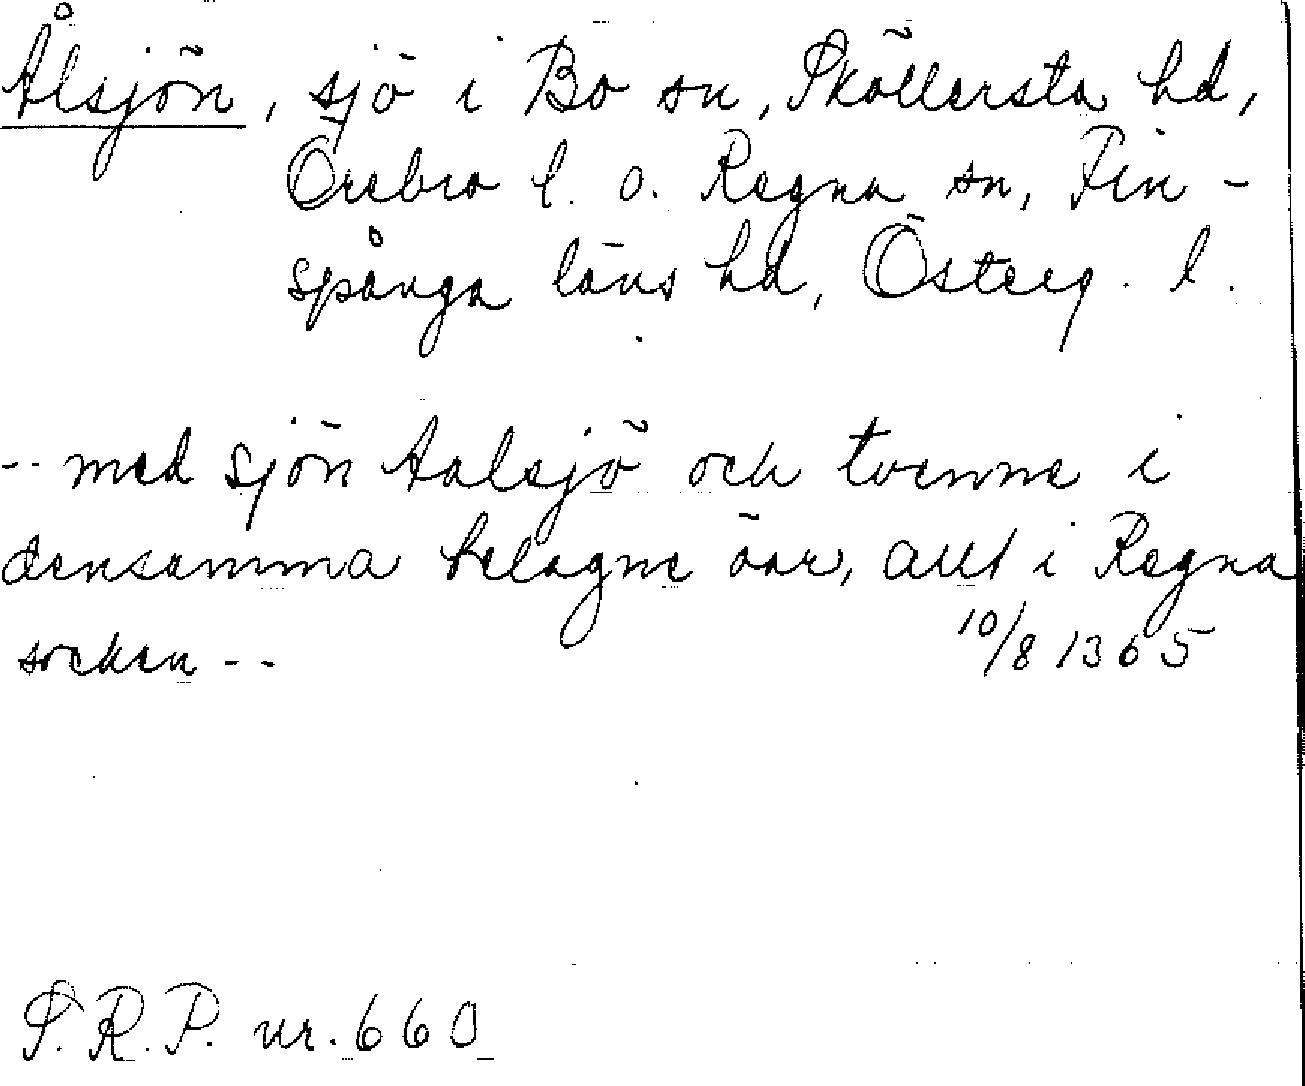 Ålsjön, sjö i Bo sn, Sköllersta hd,
Örebro l. o. Regna sn, Fin-
spånga läns hd, Österg. l.
-- med sjön Aalsjö och tvenne i
densamma belagne öar, allt i Regna
socken --
10/8 1365
S.R.P. nr. 660